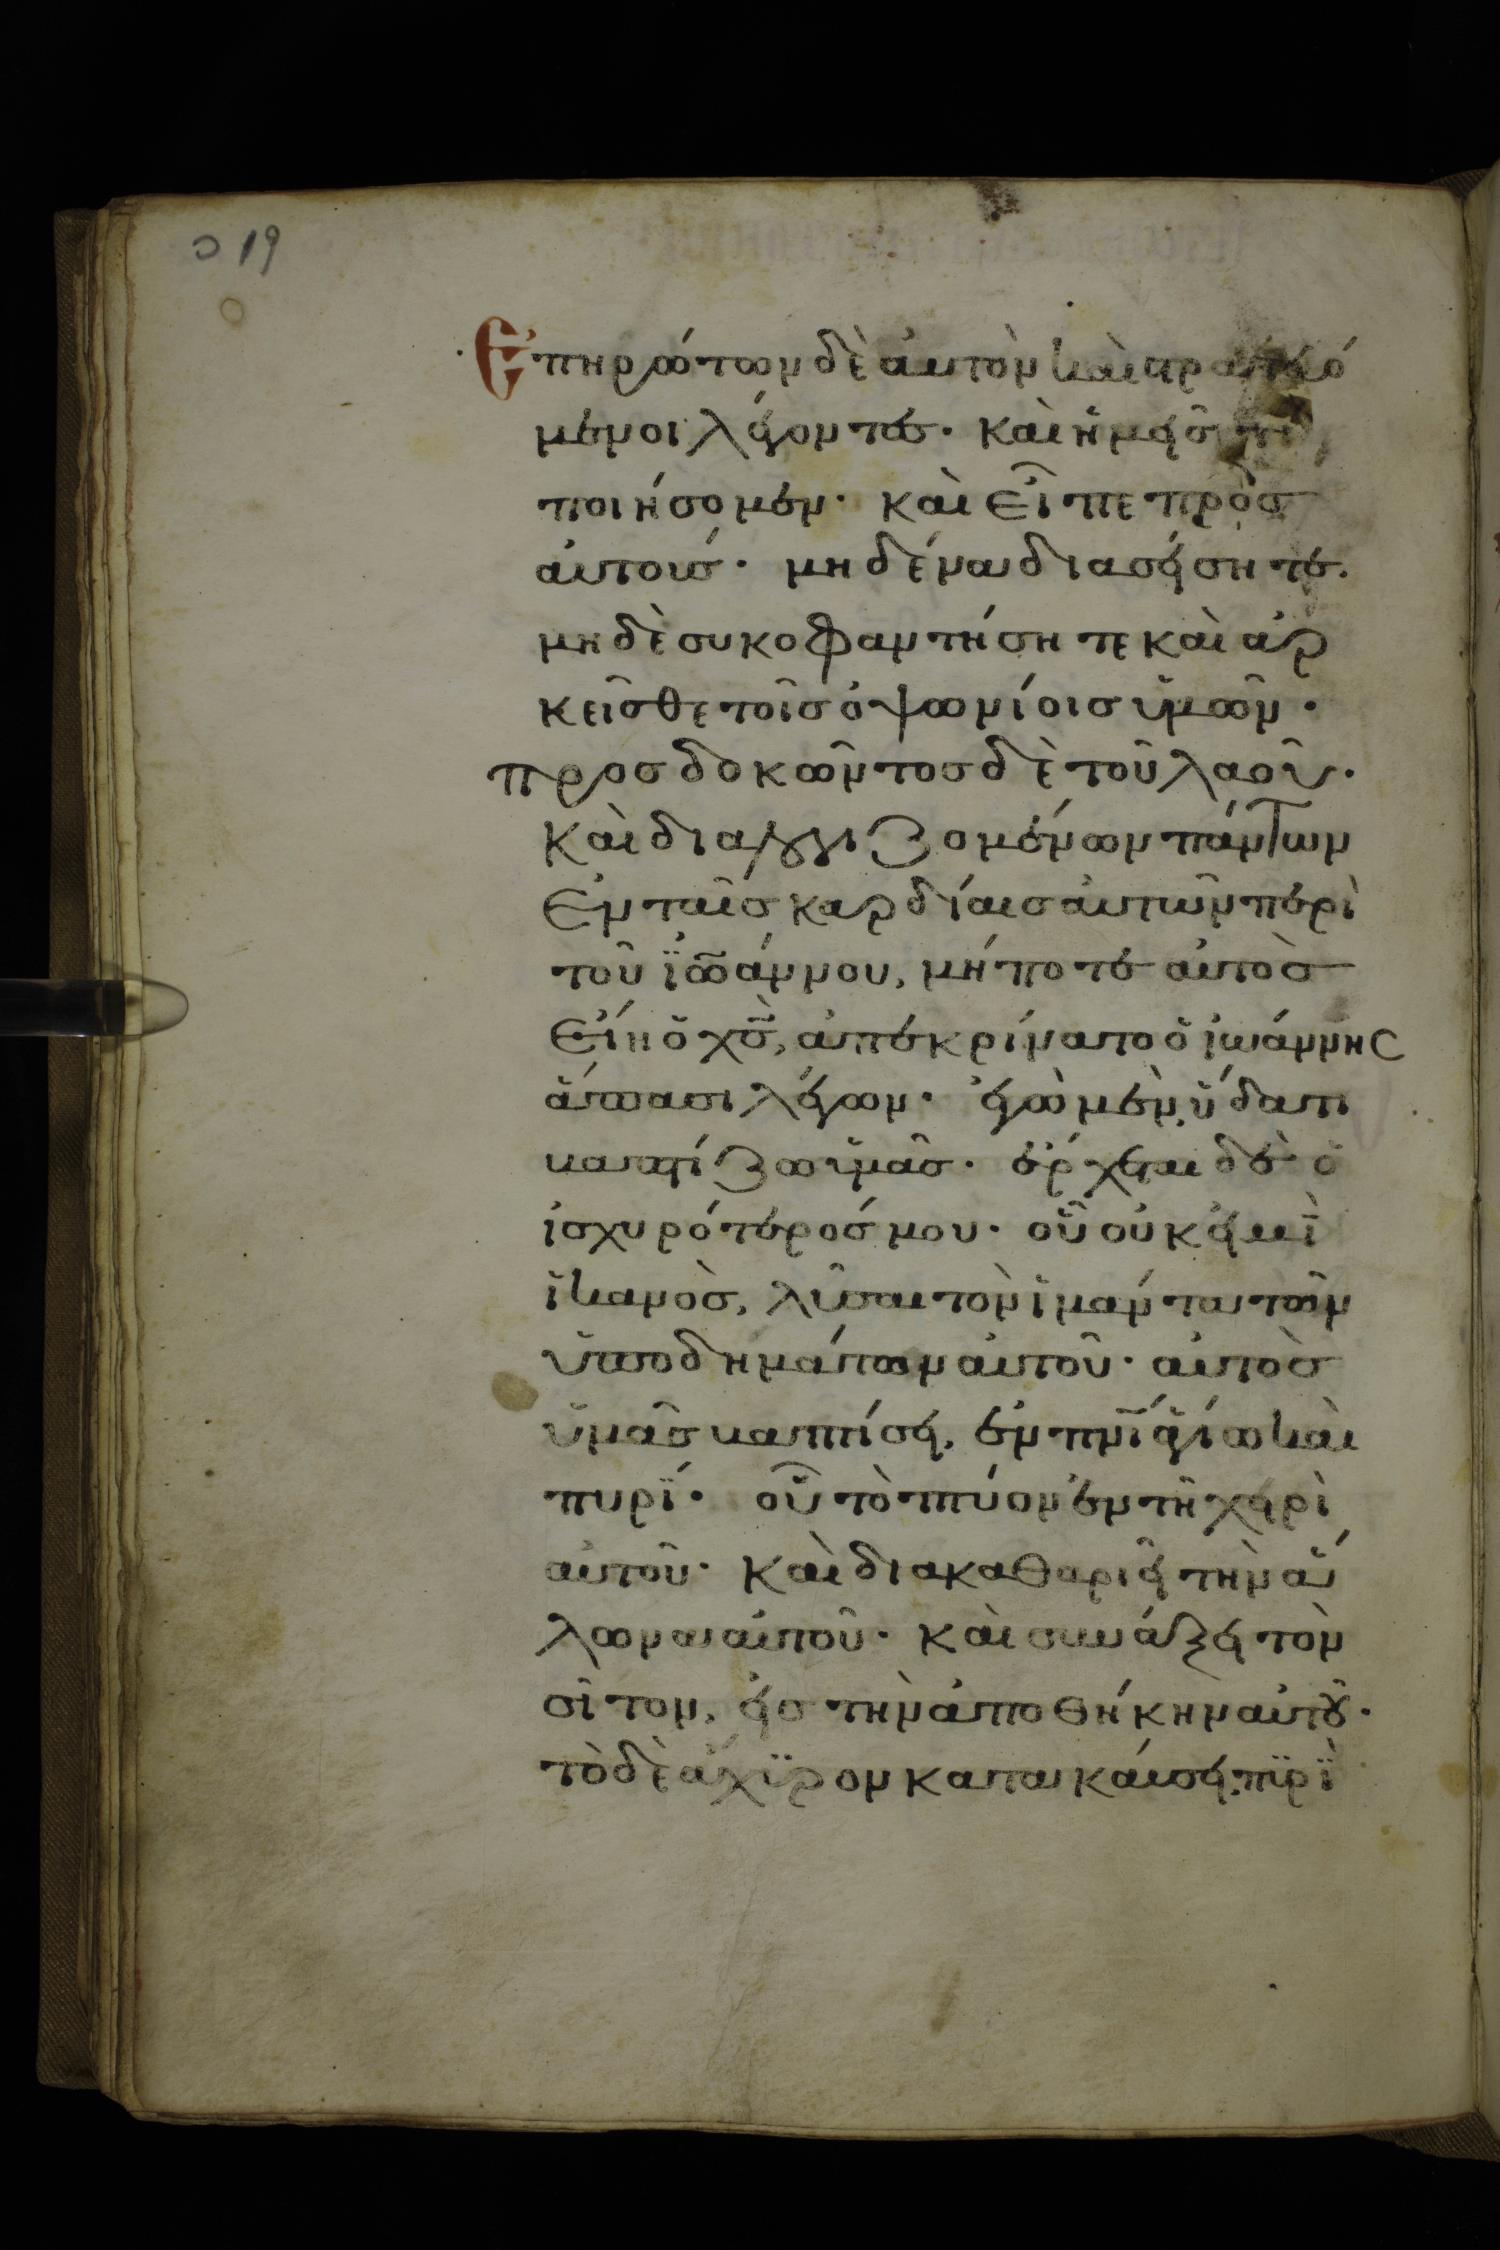 19
Ἐπηρώτων δὲ ἀυτὸν καὶ στρατευό
μενοι λέγοντες· καὶ ἡμεῖς τί
ποιήσομεν· καὶ εἶπε πρὸς
ἀυτούς· μηδένα διασείσητε.
μηδὲ συκοφαντήσητε καὶ ἀρ
κεῖσθε τοῖς ὀψωνίοις ὑμῶν·
προσδοκῶντος δὲ τοῦ λαοῦ·
καὶ διαλογιζομένων πάντων
ἐν ταῖς καρδίαις ἀυτῶν περὶ
τοῦ ϊωάννου, μήποτε ἀυτὸς
εἴη ὁ χς̅, ἀπεκρίνατο ὁ ἰωάννης
ἅπασι λέγων· ἐγὼ μὲν, ὕδατι
βαπτίζω ὑμᾶς· ἔρχεται δὲ ὁ
ἰσχυρότερός μου· οὗ οὐκ εἰμὶ
ἱκανὸς, λῦσαι τὸν ἱμάντα τῶν
ὑποδημάτων ἀυτοῦ· ἀυτὸς
ὑμᾶς βαπτίσει, ἐν πνι̅ ἁγίω καὶ
πυρί· οὗ τὸ πτύον ἐν τῆ χειρὶ
ἀυτοῦ· καὶ διακαθαριεῖ τὴν ἅ
λωνα ἀυτοῦ· καὶ συνάξει τὸν
σῖτον, εἰς τὴν ἀποθήκην ἀυτοῦ·
τὸ δὲ ἄχϋρον κατακάυσει, πϋρὶ